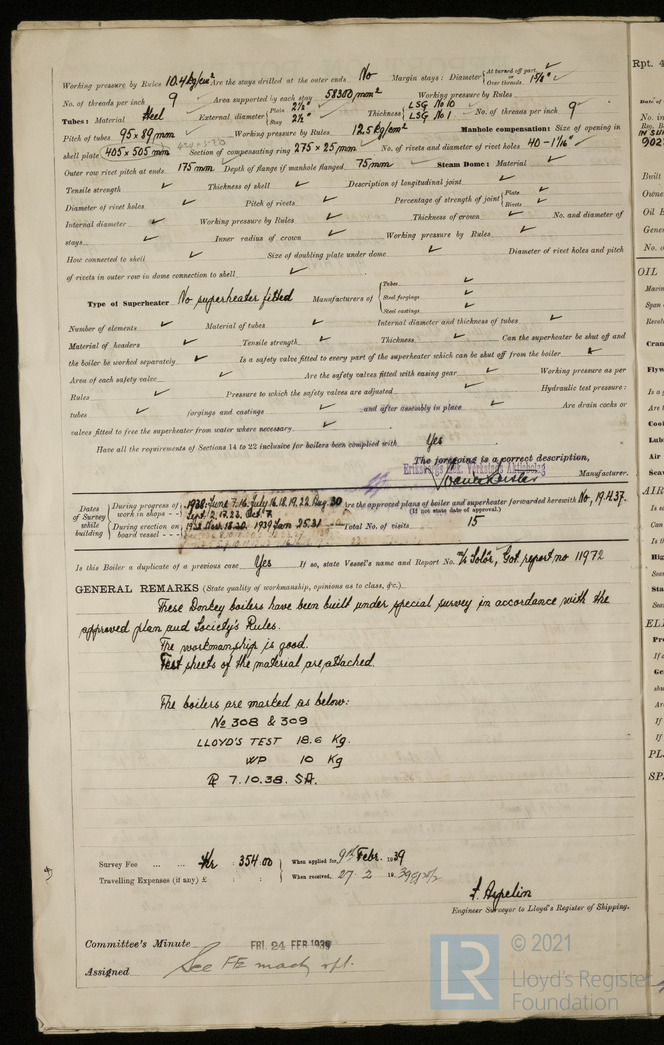 Working pressure by Rules 10.4 kg/cm² Are the stays drilled at the outer ends No Margin stays: Diameter { At turned off part, or Over threads 1 5/8"
No. of threads per inch 9 Area supported by each stay 58300 mm² Working pressure by Rules
Tubes: Material Steel External diameter { Plain 2½" Stay 2½" Thickness { LSG No 10 LSG No 1 No. of threads per inch 9
Pitch of tubes 95 x 89 mm Working pressure by Rules 12.5 kg/cm² Manhole compensation: Size of opening in
shell plate 405 x 505 mm Section of compensating ring 275 x 25 mm No. of rivets and diameter of rivet holes 40 - 1 1/16"
Outer row rivet pitch at ends 175 mm Depth of flange if manhole flanged 75 mm Steam Dome: Material
Tensile strength Thickness of shell Description of longitudinal joint
Diameter of rivet holes Pitch of rivets Percentage of strength of joint { Plate Rivets
Internal diameter Working pressure by Rules Thickness of crown No. and diameter of
stays Inner radius of crown Working pressure by Rules
How connected to shell Size of doubling plate under dome Diameter of rivet holes and pitch
of rivets in outer row in dome connection to shell
Type of Superheater No superheater fitted Manufacturers of { Tubes Steel forgings Steel castings
Number of elements Material of tubes Internal diameter and thickness of tubes
Material of headers Tensile strength Thickness Can the superheater be shut off and
the boiler be worked separately Is a safety valve fitted to every part of the superheater which can be shut off from the boiler
Area of each safety valve Are the safety valves fitted with easing gear Working pressure as per
Rules Pressure to which the safety valves are adjusted Hydraulic test pressure:
tubes forgings and castings and after assembly in place Are drain cocks or
valves fitted to free the superheater from water where necessary
Have all the requirements of Sections 14 to 22 inclusive for boilers been complied with Yes
The foregoing is a correct description,
Eriksbergs Mek. Verkstads Aktiebolag
Manufacturer.
Dates of Survey while building { During progress of work in shops - - 1938: June 7. 16. July 16. 18. 19. 22 Aug. 30 Are the approved plans of boiler and superheater forwarded herewith No, 19.4.37.
Sept. 2. 17. 22. Oct. 7. (If not state date of approval.)
During erection on board vessel - - - 1938 Nov. 18. 30. 1939 Jan. 25. 31 Total No. of visits 15
Is this Boiler a duplicate of a previous case Yes If so, state Vessel's name and Report No. M/S Solör, Got. report no 11972
GENERAL REMARKS (State quality of workmanship, opinions as to class, &c.)
These Donkey boilers have been built under special survey in accordance with the
approved plan and Society's Rules.
The workmanship is good.
Test sheets of the material are attached.
The boilers are marked as below:
No 308 & 309
LLOYD'S TEST 18.6 Kg.
WP 10 Kg
7.10.38. SA.
Survey Fee ... ... Kr : 354.00 When applied for, 9th Febr. 1939
Travelling Expenses (if any) £ : : When received, 27. 2 1939
Engineer Surveyor to Lloyd's Register of Shipping.
Committee's Minute FRI. 24 FEB 1939
Assigned See FE machy rpt.
LR © 2021
Lloyd's Register
Foundation
Rpt. 4